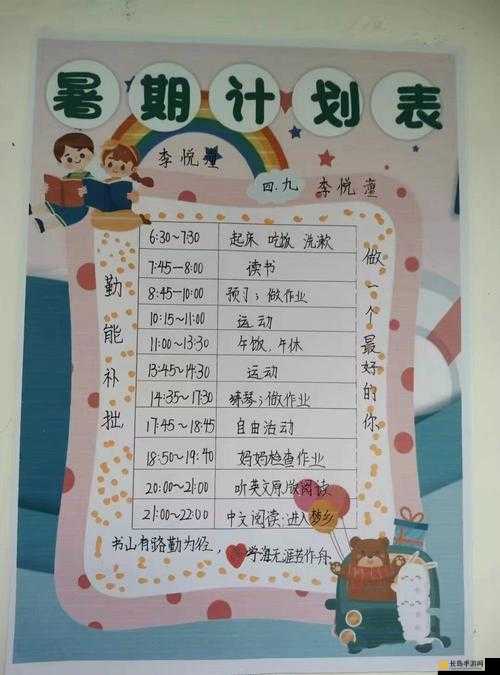 暑期计划表
李悦潼
四.九 李悦潼
6:30~7:30 起床 吃饭 洗漱
7:45—8:00 读书
8:45—10:00 预习;做作业
10:15~11:00 运动
11:00~13:30 午饭,午休
13:45~14:30 运动
14:35~17:30 练琴;做作业
17:45~18:45 自由活动
18:50~19:40 妈妈检查作业
20:00~21:00 听英文原版阅读
21:00~22:00 中文阅读;进入梦乡
勤能补拙
做一个最好的你
书山有路勤为径,学海无涯苦作舟
长岛手游网